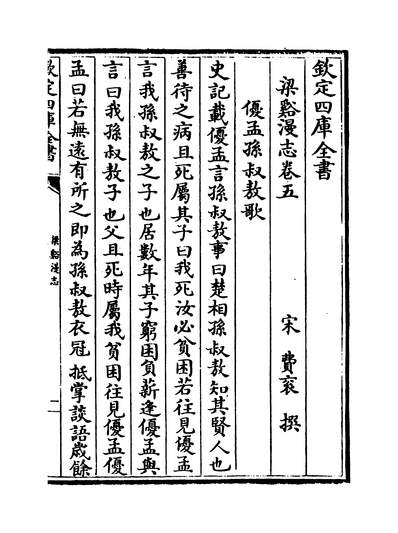 欽定四庫全書
梁谿漫志卷五
宋 費袞 撰
優孟孫叔敖歌
史記載優孟言孫叔敖事曰楚相孫叔敖知其賢人也
善待之病且死屬其子曰我死汝必貧困若往見優孟
言我孫叔敖之子也居數年其子窮困負薪逢優孟與
言曰我孫叔敖子也父且死時屬我貧困往見優孟優
孟曰若無遠有所之即為孫叔敖衣冠抵掌談語歲餘
欽定四庫全書
梁谿漫志